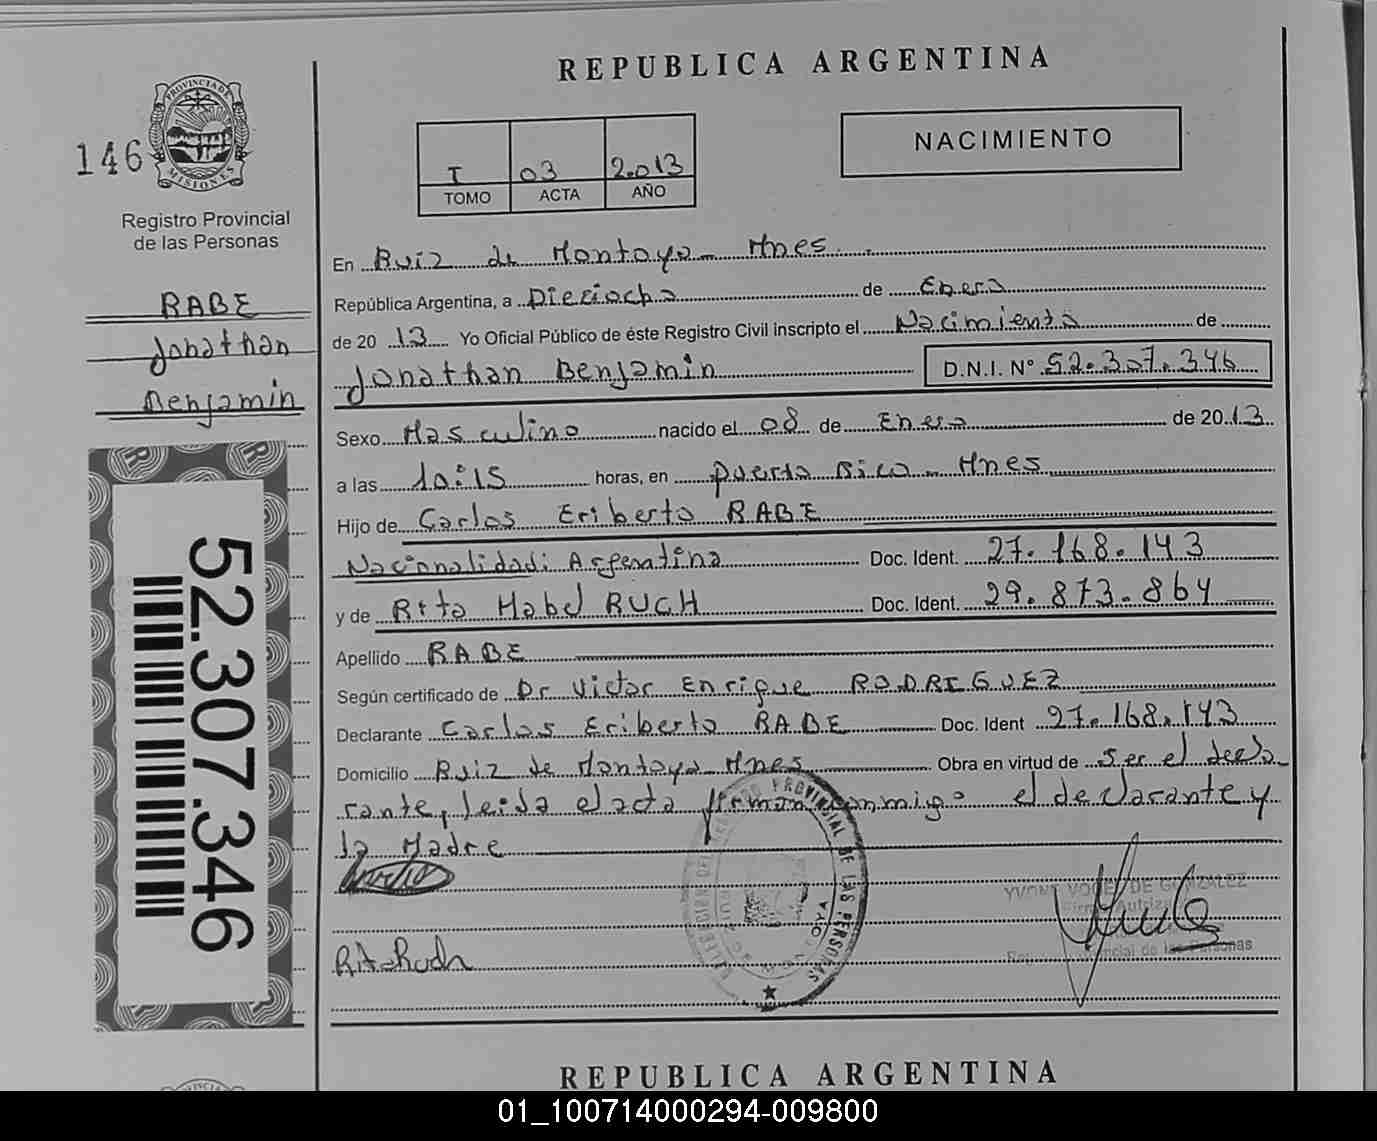 REPUBLICA ARGENTINA
PROVINCIA DE
MISIONES
146
Registro Provincial
de las Personas
I 03 2.013
TOMO ACTA AÑO
NACIMIENTO
RABE
Jonathan
Benjamin
52.307.346
En Ruiz de Montoya - Mnes.
República Argentina, a Dieciocho de Enero
de 20 13 Yo Oficial Público de éste Registro Civil inscripto el Nacimiento de
Jonathan Benjamin D.N.I. Nº 52.307.346
Sexo Masculino nacido el 08 de Enero de 20 13
a las 10:15 horas, en Puerto Rico - Mnes
Hijo de Carlos Eriberto RABE
Nacionalidad: Argentina Doc. Ident. 27.168.143
y de Rita Mabel RUCH Doc. Ident. 29.873.864
Apellido RABE
Según certificado de Dr Victor Enrique RODRIGUEZ
Declarante Carlos Eriberto RABE Doc. Ident 27.168.143
Domicilio Ruiz de Montoya - Mnes Obra en virtud de ser el decla
rante, leida el acta firman conmigo el declarante y
la Madre
PROVINCIAL DE LAS PERSONAS
YVONE VOGEL DE GONZALEZ
Rita Ruch
de las Personas
REPUBLICA ARGENTINA
01_100714000294-009800